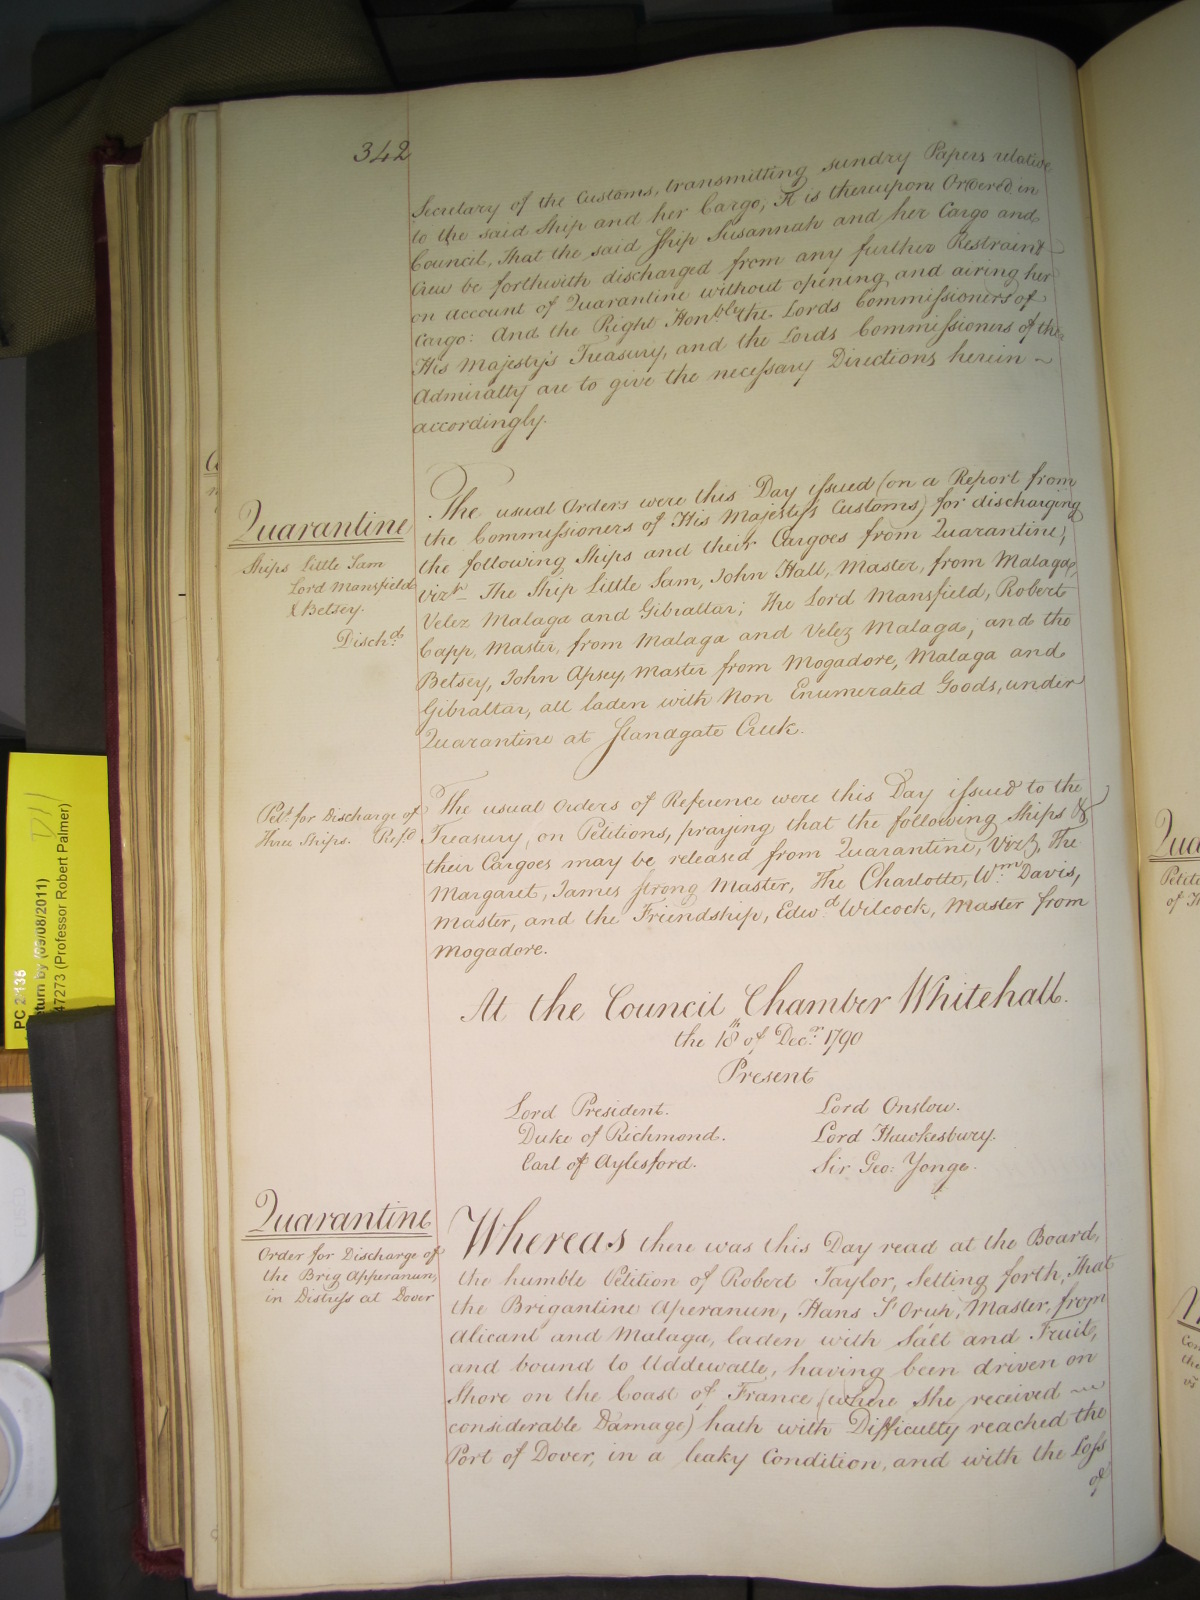 342
Secretary of the Customs, transmitting sundry Papers relative
to the said Ship and her Cargo; It is thereupon Ordered in
Council, That the said Ship Susannah and her Cargo and
Crew be forthwith discharged from any further Restraint
on account of Quarantine without opening and airing her
Cargo: And the Right Honbly the Lords Commissioners of
His Majesty's Treasury, and the Lords Commissioners of the
Admiralty are to give the necessary Directions herein ~
accordingly.
Quarantine
Ships Little Sam
Lord Mansfield
& Betsey.
Dischd.
The usual Orders were this Day issued (on a Report from
the Commissioners of His Majesty's Customs) for discharging
the following Ships and their Cargoes from Quarantine,
vizt. The Ship Little Sam, John Hall, Master, from Malaga,
Velez Malaga and Gibraltar; The Lord Mansfield, Robert
Capp, Master, from Malaga and Velez Malaga, and the
Betsey, John Apsey, Master from Mogadore, Malaga and
Gibraltar, all laden with Non Enumerated Goods, under
Quarantine at Standgate Creek.
Petn. for Discharge of
Three Ships. Refd.
The usual Orders of Reference were this Day issued to the
Treasury, on Petitions, praying that the following Ships &
their Cargoes may be released from Quarantine, Vizt, The
Margaret, James Strong Master, The Charlotte, Wm. Davis,
Master, and the Friendship, Edwd. Wilcock, Master from
Mogadore.
At the Council Chamber Whitehall.
the 18th of Decr. 1790
Present
Lord President. Lord Onslow.
Duke of Richmond. Lord Hawkesbury.
Earl of Aylesford. Sir Geo: Yonge.
Quarantine
Order for Discharge of
the Brig Apperanun,
in Distress at Dover
Whereas there was this Day read at the Board,
the humble Petition of Robert Taylor, Setting forth, That
the Brigantine Aperanun, Hans Master, from
Alicant and Malaga, laden with Salt and Fruit,
and bound to Uddewalle, having been driven on
Shore on the Coast of France (where she received ~
considerable Damage) hath with Difficulty reached the
Port of Dover, in a leaky Condition, and with the Loss
of
PC 2/135
turn by (09/08/2011)
47273 (Professor Robert Palmer)
D11